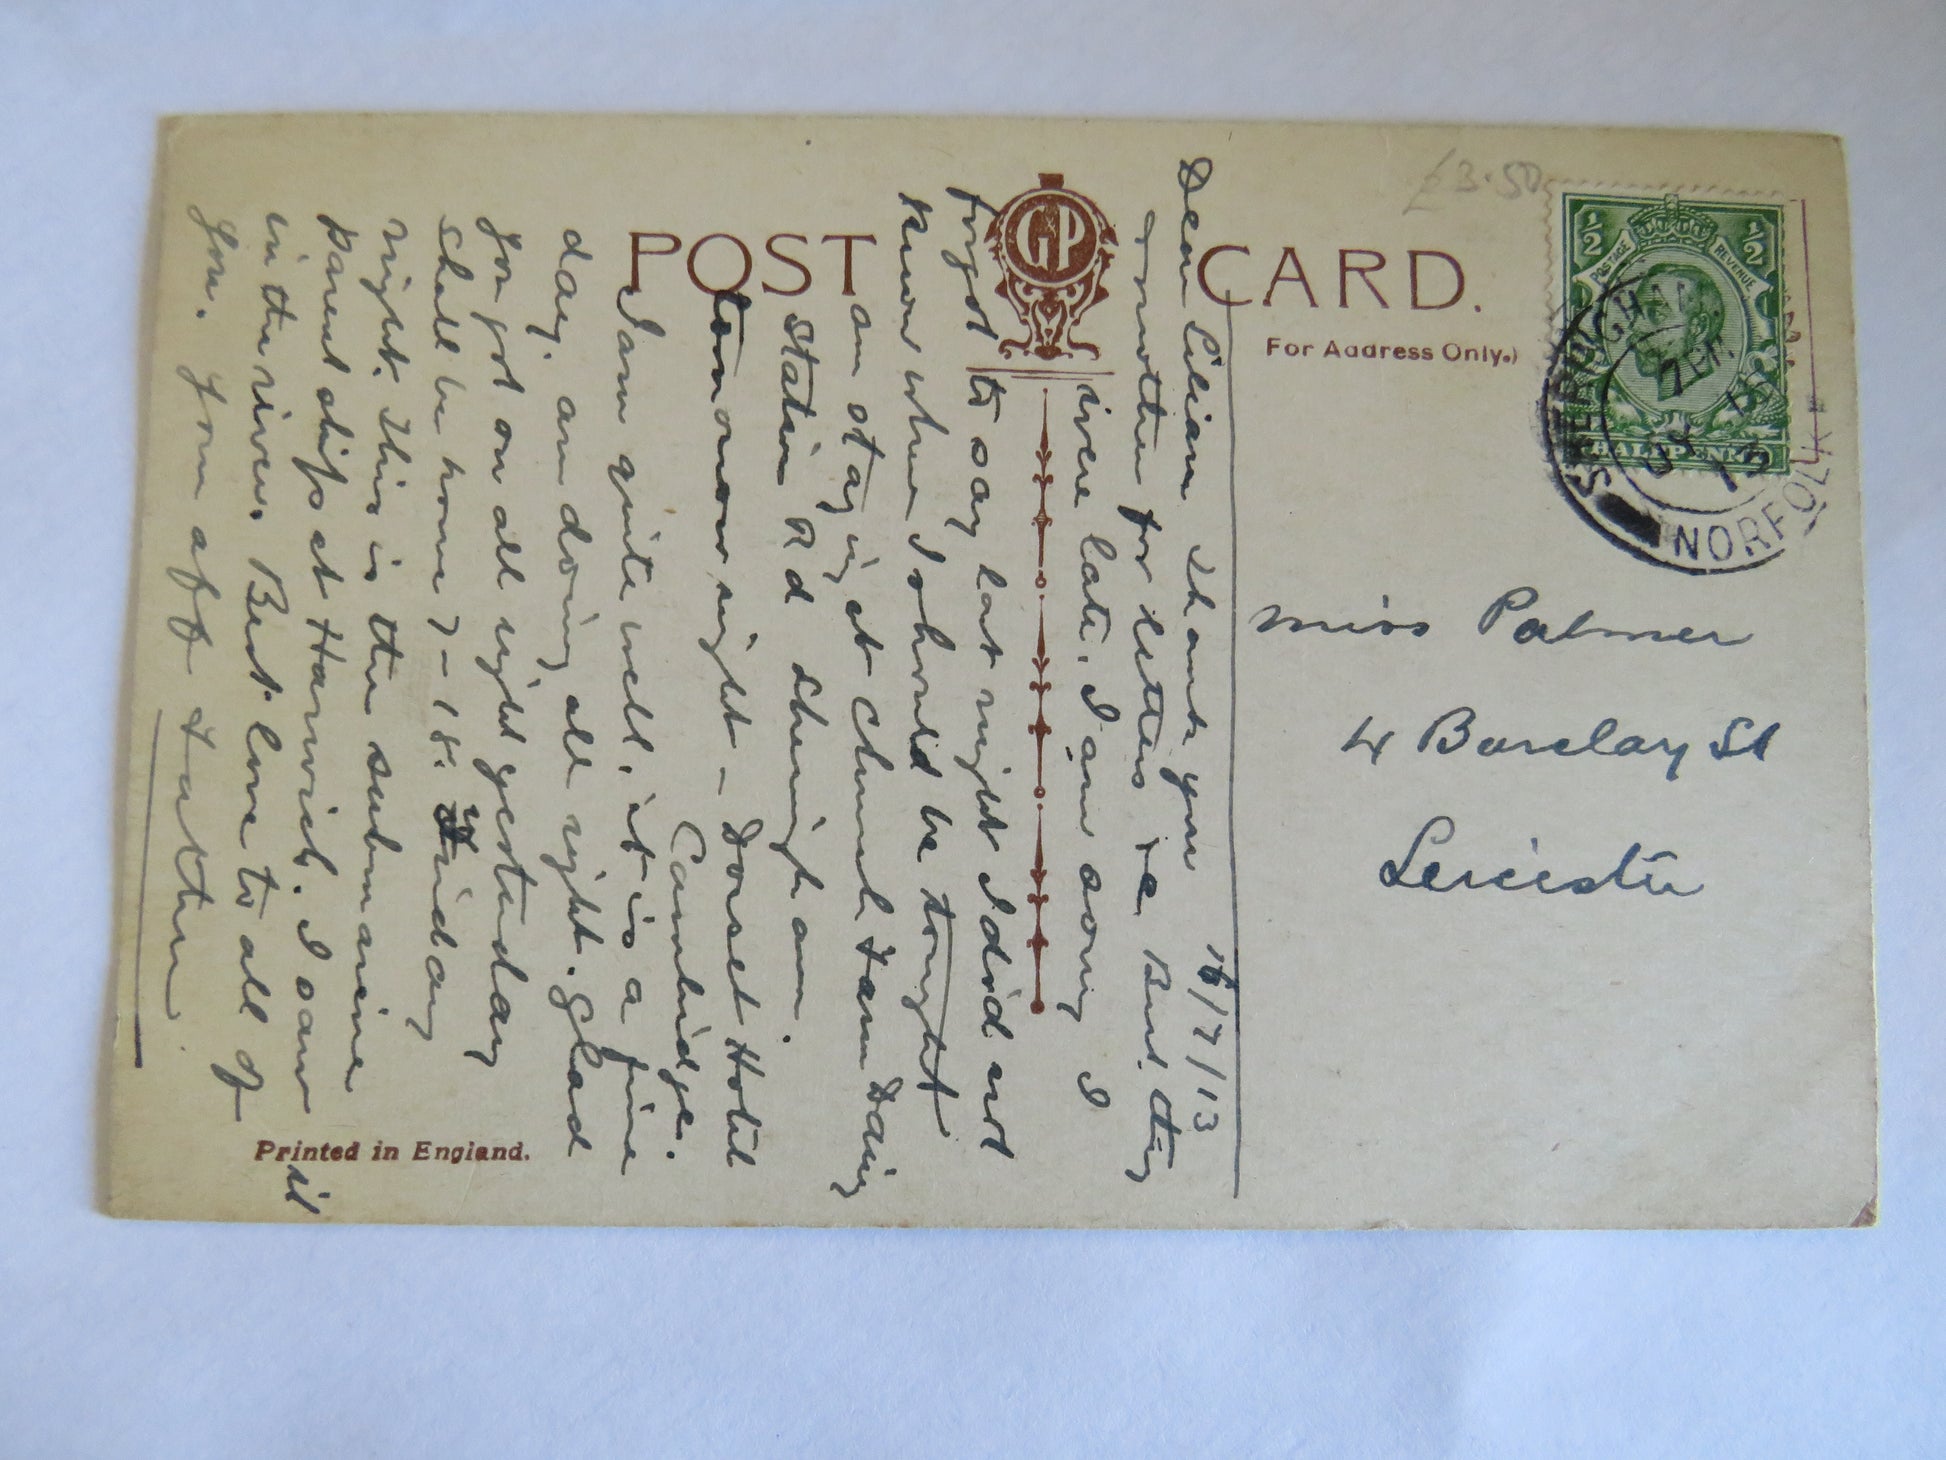 POST CARD.
GP
For Address Only.)
£3.50
½ ½
POSTAGE REVENUE
HALFPENNY
SHERINGHAM
7 PM
JY 16
13
NORFOLK
Miss Palmer
4 Barclay St
Leicester
16/7/13
Dear Lilian Thank you
& mother for letters re Bert. They
were late. I am sorry I
forgot to say last night I did not
know where I should be tonight
am staying at Church Farm Dairy
Station Rd Sheringham.
tomorrow night - Dorset Hotel
Cambridge.
I am quite well, it is a fine
day, am doing all right. Glad
you got on all right yesterday
shall be home 7-18. Friday
night. This is the submarine
parent ship at Harwich. I saw it
in the river. Best love to all of
you. Your aff Father.
Printed in England.